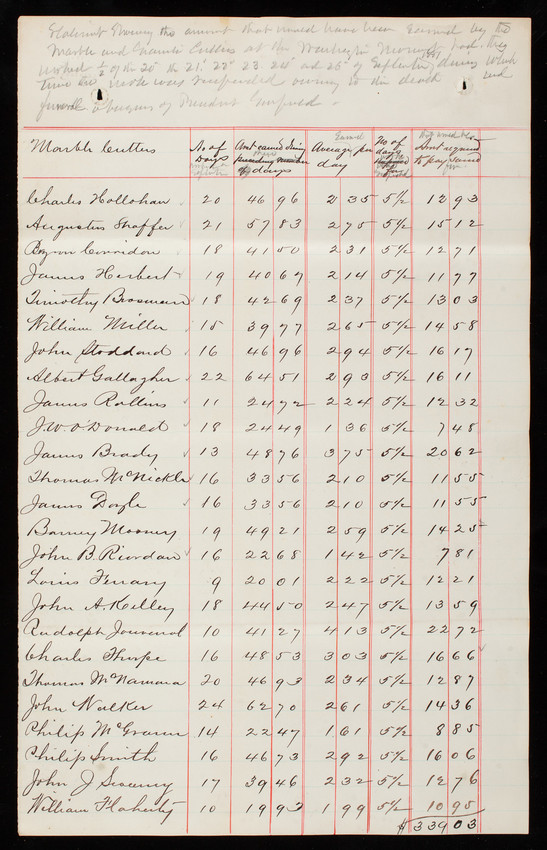 Statement Showing the amount that would have been Earned by the
Marble and Granite Cutters at the Washington Monument had they
worked ½ of the 20th the 21st 22d 23. 24th and 26th of September, 1881 during which
time the work was suspended owing to the death and
funeral obsequies of President Garfield.
Marble Cutters No of Days Amt earned during days Average per day No of days Amt to pay
Charles Hollohan 20 46 96 2 35 5 1/2 12 93
Augustus Shaffer 21 57 83 2 75 5 1/2 15 12
Byron Corridon 18 41 50 2 31 5 1/2 12 71
James Herbert 19 40 67 2 14 5 1/2 11 77
Timothy Brosman 18 42 69 2 37 5 1/2 13 03
William Miller 15 39 77 2 65 5 1/2 14 58
John Stoddard 16 46 96 2 94 5 1/2 16 17
Albert Gallagher 22 64 51 2 93 5 1/2 16 11
James Rollins 11 24 72 2 24 5 1/2 12 32
J. W. O'Donald 18 24 49 1 36 5 1/2 7 48
James Brady 13 48 76 3 75 5 1/2 20 62
Thomas McNickle 16 33 56 2 10 5 1/2 11 55
James Doyle 16 33 56 2 10 5 1/2 11 55
Barney Mooney 19 49 21 2 59 5 1/2 14 25
John B. Riordan 16 22 68 1 42 5 1/2 7 81
Louis Ferrary 9 20 01 2 22 5 1/2 12 21
John A. Kelley 18 44 50 2 47 5 1/2 13 59
Rudolph Jouvenal 10 41 27 4 13 5 1/2 22 72
Charles Thorpe 16 48 53 3 03 5 1/2 16 66
Thomas McNamara 20 46 93 2 34 5 1/2 12 87
John Walker 24 62 70 2 61 5 1/2 14 36
Philip McGraw 14 22 47 1 61 5 1/2 8 85
Philip Smith 16 46 73 2 92 5 1/2 16 06
John J Sweeny 17 39 46 2 32 5 1/2 12 76
William Flaherty 10 19 93 1 99 5 1/2 10 95
$ 339 03